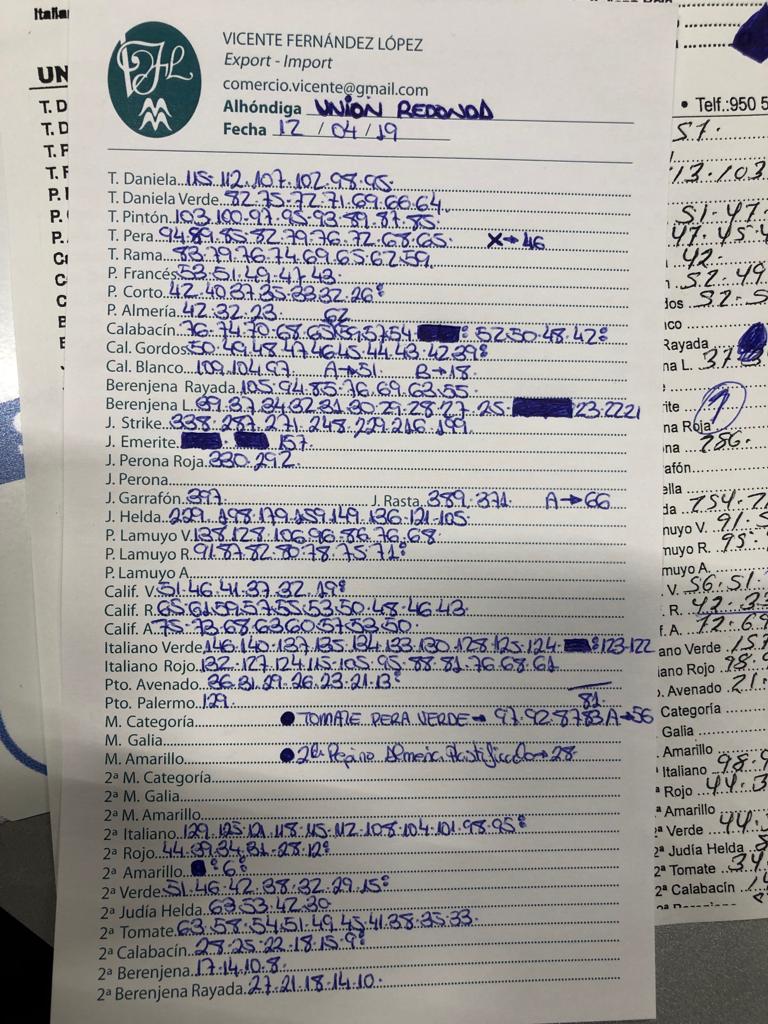 VICENTE FERNÁNDEZ LÓPEZ
Export - Import
comercio.vicente@gmail.com
Alhóndiga UNION REDONDA
Fecha 12 / 04 / 19
T. Daniela 115.112.107.102.98.95.
T. Daniela Verde 82.75.72.71.69.66.64.
T. Pintón 103.100.97.95.93.89.87.85.
T. Pera 94.89.85.82.79.76.72.68.65. X→46
T. Rama 83.79.76.74.69.65.62.59.
P. Francés 53.51.49.47.43.
P. Corto 42.40.37.35.33.32.26
P. Almería 42.32.23.
62
Calabacín 76.74.70.68.65.59.57.54 52.50.48.42
Cal. Gordos 50.49.48.47.46.45.44.43.42.39
Cal. Blanco 109.104.97. A→51 B→18.
Berenjena Rayada 105.94.85.76.69.63.55.
Berenjena L. 39.37.34.32.31.30.29.28.27.25. 23.22.21
J. Strike 338.287.271.248.229.216.199.
J. Emerite 157.
J. Perona Roja 330.292.
J. Perona
J. Garrafón 397 J. Rasta 389.371. A→66
J. Helda 229.198.179.159.149.136.121.105.
P. Lamuyo V. 138.128.106.96.86.76.68.
P. Lamuyo R. 91.87.82.80.78.75.71
P. Lamuyo A.
Calif. V. 51.46.41.37.32.19
Calif. R. 65.61.59.57.55.53.50.48.46.43.
Calif. A. 75.73.68.63.60.57.53.50.
Italiano Verde 146.140.137.135.134.133.130.128.125.124. 123.122
Italiano Rojo 132.127.124.115.105.95.88.81.76.68.61.
Pto. Avenado 36.31.29.26.23.21.13
Pto. Palermo 129.
81.
M. Categoría ● TOMATE PERA VERDE→ 97.92.87.83 A→56
M. Galia
M. Amarillo ● 2ª Pepino Almería Plastificado→28
2ª M. Categoría
2ª M. Galia
2ª M. Amarillo
2ª Italiano 129.125.121.118.115.112.108.104.101.98.95
2ª Rojo 44.39.34.31.28.12
2ª Amarillo 6
2ª Verde 51.46.42.38.32.29.15
2ª Judía Helda 63.53.42.30
2ª Tomate 63.58.54.51.49.45.41.38.35.33.
2ª Calabacín 28.25.22.18.15.9
2ª Berenjena 17.14.10.8.
2ª Berenjena Rayada 27.21.18.14.10.